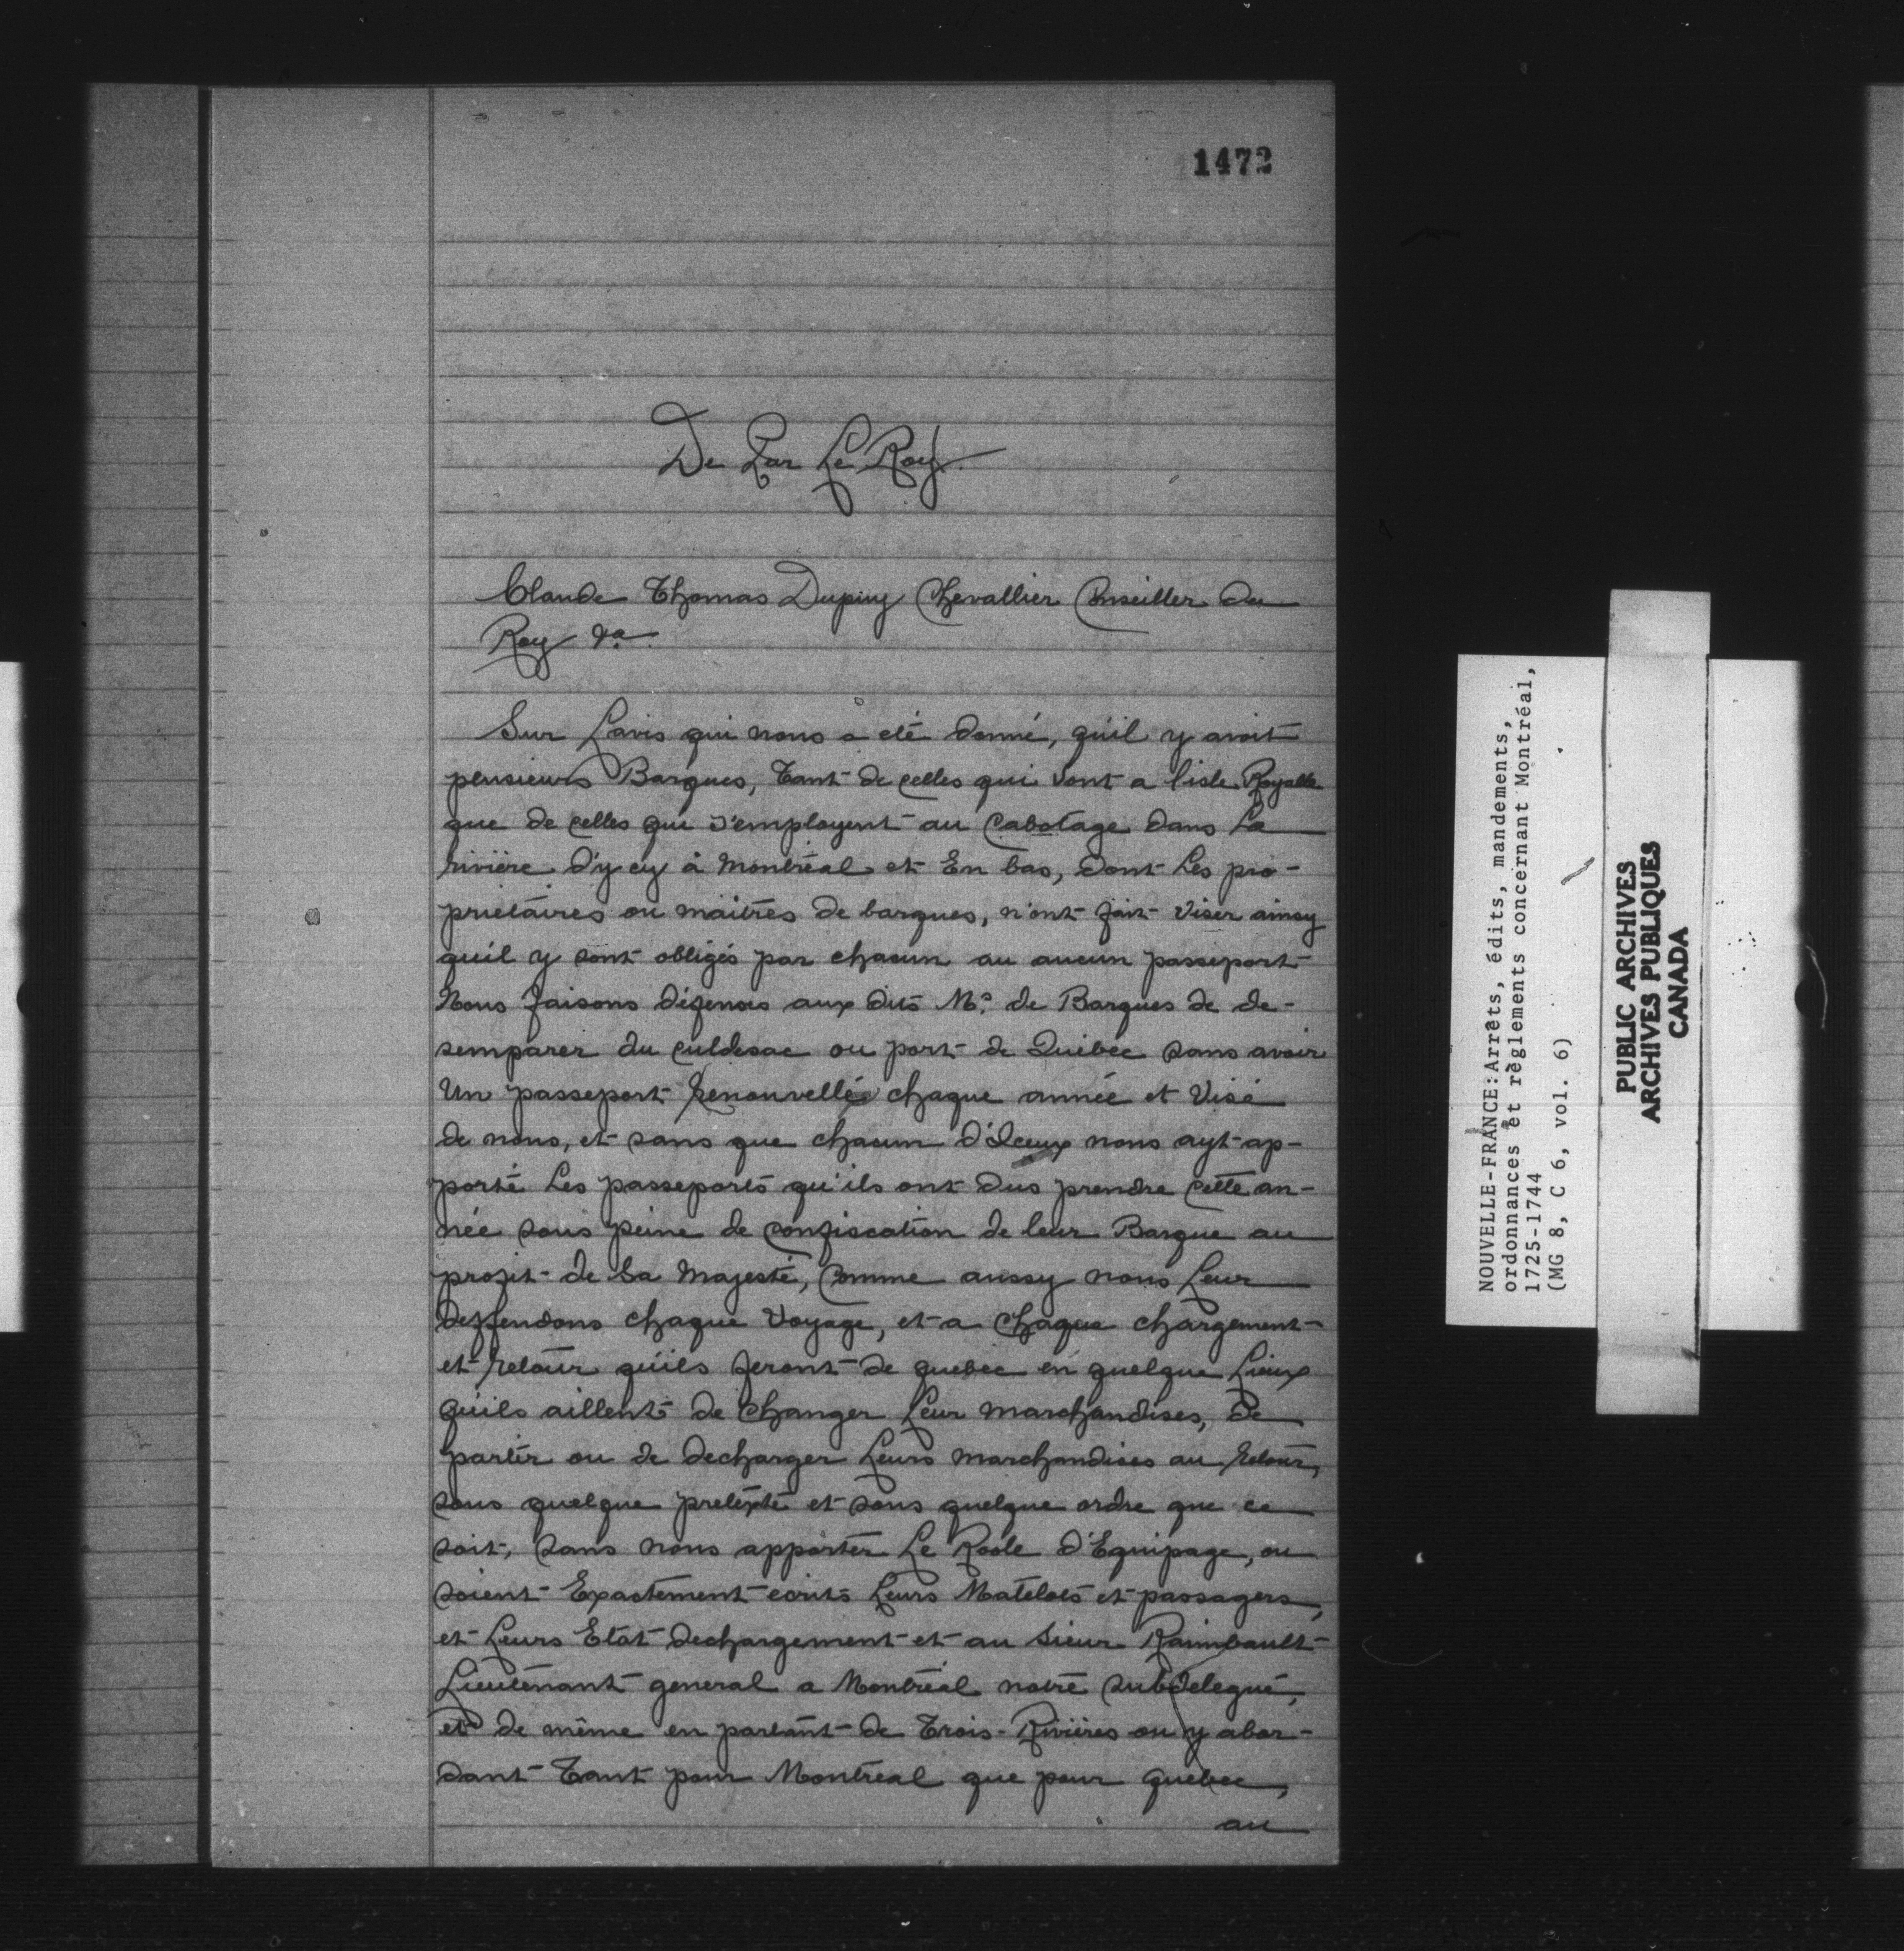 1472
De Par Le Roy
Claude Thomas Dupuy Chevallier Conseiller du
Roy &a.
Sur Lavis qui nous a eté donné, qu'il y avoit
plusieurs Barques, tant de celles qui vont a l'isle Royalle
que de celles qui s'employent au Cabotage dans La
rivière d'ycy à Montréal et En bas, dont Les pro-
priétaires ou maitres de barques, n'ont fait viser ainsy
quil y sont obligés par chacun au aucun passeport
Nous faisons défenses aux dits Ms. de Barques de de-
semparer du culdesac ou port de Québec sans avoir
Un passeport Renouvellé chaque année et Visé
de nous, et sans que chacun d'Iceux nous ayt ap-
porté Les passeports qu'ils ont dus prendre cette an-
née sous peine de confiscation de leur Barque au
profit de Sa Majesté, Comme aussy nous Leur
deffendons chaque voyage, et a chaque chargement
et retour qu'ils feront de quebec en quelque Lieux
qu'ils aillent de Changer Leur marchandises, de
partir ou de decharger Leurs marchandises au Retour,
sous quelque prétexte et sous quelque ordre que ce
soit, sans nous apporter Le Roole d'Equipage, ou
soient Exactement ecrits Leurs Matelots et passagers,
et Leurs Etat dechargement et au Sieur Raimbault
Lieutenant general a Montréal notre subdelegué,
et de même en partant de Trois-Rivières ou y abor-
dant Tant pour Montréal que pour quebec,
au
NOUVELLE-FRANCE:Arrêts, édits, mandements,
ordonnances et règlements concernant Montréal,
1725-1744
(MG 8, C 6, vol. 6)
PUBLIC ARCHIVES
ARCHIVES PUBLIQUES
CANADA